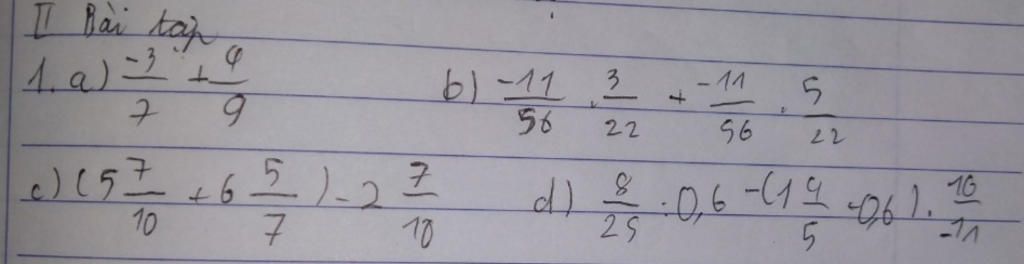 II Bài tập
1. a) \frac{-3}{7} + \frac{4}{9} b) \frac{-11}{56} . \frac{3}{22} + \frac{-11}{56} . \frac{5}{22}
c) (5\frac{7}{10} + 6\frac{5}{7}) - 2\frac{7}{10} d) \frac{8}{25} : 0,6 - (1\frac{4}{5} - 0,6) . \frac{10}{-11}